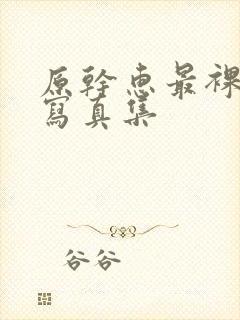 原幹恵最裸
寫真集
谷谷